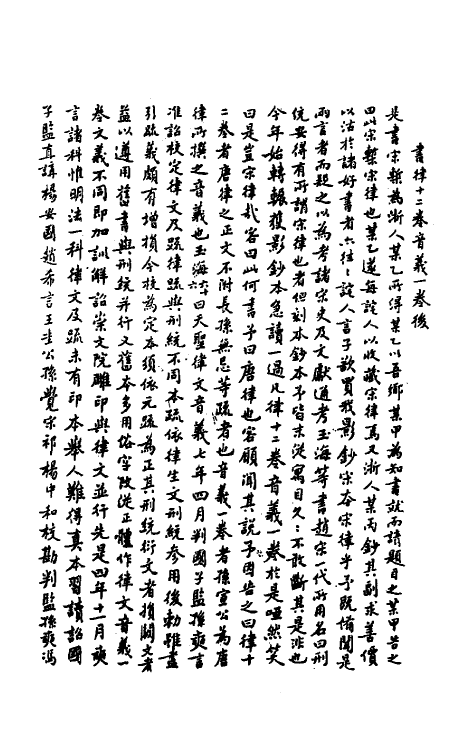 書律十二卷音義一卷後
是書宋槧為浙人某乙所得某乙以吾鄉某甲為知書就而請題目之某甲告之
曰此宋槧宋律也某乙遂每詫人以收藏宋律焉又浙人某丙鈔其副求善價
以沽於諸好書者亦往往詫人言子欲買我影鈔宋本宋律乎予既備聞是
兩言者而疑之以為考諸宋史及文獻通考玉海等書趙宋一代所用名曰刑
統安得有所謂宋律也者但刻本鈔本予皆未從寓目久不敢斷其是非也
今年始轉輾獲影鈔本急讀一過凡律十二卷音義一卷於是啞然笑
曰是豈宋律哉客曰此何書予曰唐律也客願聞其說予因告之曰律十
二卷者唐律之正文不附長孫無忌等疏者也音義一卷者孫宣公為唐
律所撰之音義也玉海六十六曰天聖律文音義七年四月判國子監孫奭言
准詔校定律文及疏律疏與刑統不同本疏依律生文刑統參用後勅雖盡
引疏義頗有增損今校為定本須依元疏為正其刑統衍文者損闕文者
益以遵用舊書與刑統并行又舊本多用俗字改從正體作律文音義一
卷文義不同即加訓解詔崇文院雕印與律文並行先是四年十一月奭
言諸科惟明法一科律文及疏未有印本舉人難得真本習讀詔國
子監直講楊安國趙希言王圭公孫覺宋祁楊中和校勘判監孫奭馮